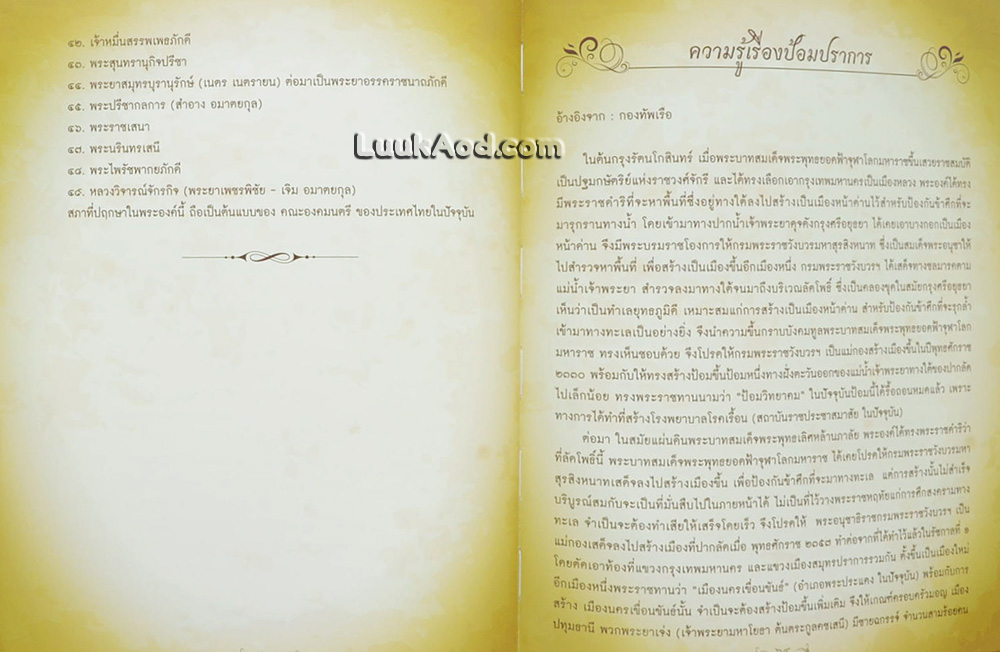 ๔๒. เจ้าหมื่นสรรพเพธภักดี
๔๓. พระสุนทรานุกิจปรีชา
๔๔. พระยาสมุทรบุรานุรักษ์ (เนตร เนตรายน) ต่อมาเป็นพระยาอรรคราชนาถภักดี
๔๕. พระปรีชากลการ (สำอาง อมาตยกุล)
๔๖. พระราชเสนา
๔๗. พระนรินทรเสนี
๔๘. พระไพรัชพากยภักดี
๔๙. หลวงวิจารณ์จักรกิจ (พระยาเพชรพิชัย - เจิม อมาตยกุล)
สภาที่ปฤกษาในพระองค์นี้ ถือเป็นต้นแบบของ คณะองคมนตรี ของประเทศไทยในปัจจุบัน
LuukAod.com
ความรู้เรื่องป้อมปราการ
อ้างอิงจาก : กองทัพเรือ
ในต้นกรุงรัตนโกสินทร์ เมื่อพระบาทสมเด็จพระพุทธยอดฟ้าจุฬาโลกมหาราชขึ้นเสวยราชสมบัติ
เป็นปฐมกษัตริย์แห่งราชวงศ์จักรี และได้ทรงเลือกเอากรุงเทพมหานครเป็นเมืองหลวง พระองค์ได้ทรง
มีพระราชดำริที่จะหาพื้นที่ซึ่งอยู่ทางใต้ลงไปสร้างเป็นเมืองหน้าด่านไว้สำหรับป้องกันข้าศึกที่จะ
มารุกรานทางน้ำ โดยเข้ามาทางปากน้ำเจ้าพระยาดุจดังกรุงศรีอยุธยา ได้เคยเอาบางกอกเป็นเมือง
หน้าด่าน จึงมีพระบรมราชโองการให้กรมพระราชวังบวรมหาสุรสิงหนาท ซึ่งเป็นสมเด็จพระอนุชาให้
ไปสำรวจหาพื้นที่ เพื่อสร้างเป็นเมืองขึ้นอีกเมืองหนึ่ง กรมพระราชวังบวรฯ ได้เสด็จทางชลมารคตาม
แม่น้ำเจ้าพระยา สำรวจลงมาทางใต้จนมาถึงบริเวณลัดโพธิ์ ซึ่งเป็นคลองขุดในสมัยกรุงศรีอยุธยา
เห็นว่าเป็นทำเลยุทธภูมิดี เหมาะสมแก่การสร้างเป็นเมืองหน้าด่าน สำหรับป้องกันข้าศึกที่จะรุกล้ำ
เข้ามาทางทะเลเป็นอย่างยิ่ง จึงนำความขึ้นกราบบังคมทูลพระบาทสมเด็จพระพุทธยอดฟ้าจุฬาโลก
มหาราช ทรงเห็นชอบด้วย จึงโปรดให้กรมพระราชวังบวรฯ เป็นแม่กองสร้างเมืองขึ้นในปีพุทธศักราช
๒๓๓๐ พร้อมกับให้ทรงสร้างป้อมขึ้นป้อมหนึ่งทางฝั่งตะวันออกของแม่น้ำเจ้าพระยาทางใต้ของปากลัด
ไปเล็กน้อย ทรงพระราชทานนามว่า "ป้อมวิทยาคม" ในปัจจุบันป้อมนี้ได้รื้อถอนหมดแล้ว เพราะ
ทางการได้ทำที่สร้างโรงพยาบาลโรคเรื้อน (สถาบันราชประชาสมาสัย ในปัจจุบัน)
ต่อมา ในสมัยแผ่นดินพระบาทสมเด็จพระพุทธเลิศหล้านภาลัย พระองค์ได้ทรงพระราชดำริว่า
ที่ลัดโพธิ์นี้ พระบาทสมเด็จพระพุทธยอดฟ้าจุฬาโลกมหาราช ได้เคยโปรดให้กรมพระราชวังบวรมหา
สุรสิงหนาทเสด็จลงไปสร้างเมืองขึ้น เพื่อป้องกันข้าศึกที่จะมาทางทะเล แต่การสร้างนั้นไม่สำเร็จ
บริบูรณ์สมกับจะเป็นที่มั่นสืบไปในภายหน้าได้ ไม่เป็นที่ไว้วางพระราชหฤทัยแก่การศึกสงครามทาง
ทะเล จำเป็นจะต้องทำเสียให้เสร็จโดยเร็ว จึงโปรดให้ พระอนุชาธิราชกรมพระราชวังบวรฯ เป็น
แม่กองเสด็จลงไปสร้างเมืองที่ปากลัดเมื่อ พุทธศักราช ๒๓๕๘ ทำต่อจากที่ได้ทำไว้แล้วในรัชกาลที่ ๑
โดยตัดเอาท้องที่แขวงกรุงเทพมหานคร และแขวงเมืองสมุทรปราการรวมกัน ตั้งขึ้นเป็นเมืองใหม่
อีกเมืองหนึ่งพระราชทานว่า "เมืองนครเขื่อนขันธ์" (อำเภอพระประแดง ในปัจจุบัน) พร้อมกับการ
สร้าง เมืองนครเขื่อนขันธ์นั้น จำเป็นจะต้องสร้างป้อมขึ้นเพิ่มเติม จึงให้เกณฑ์ครอบครัวมอญ เมือง
ปทุมธานี พวกพระยาเจ่ง (เจ้าพระยามหาโยธา ต้นตระกูลคชเสนี) มีชายฉกรรจ์ จำนวนสามร้อยคน